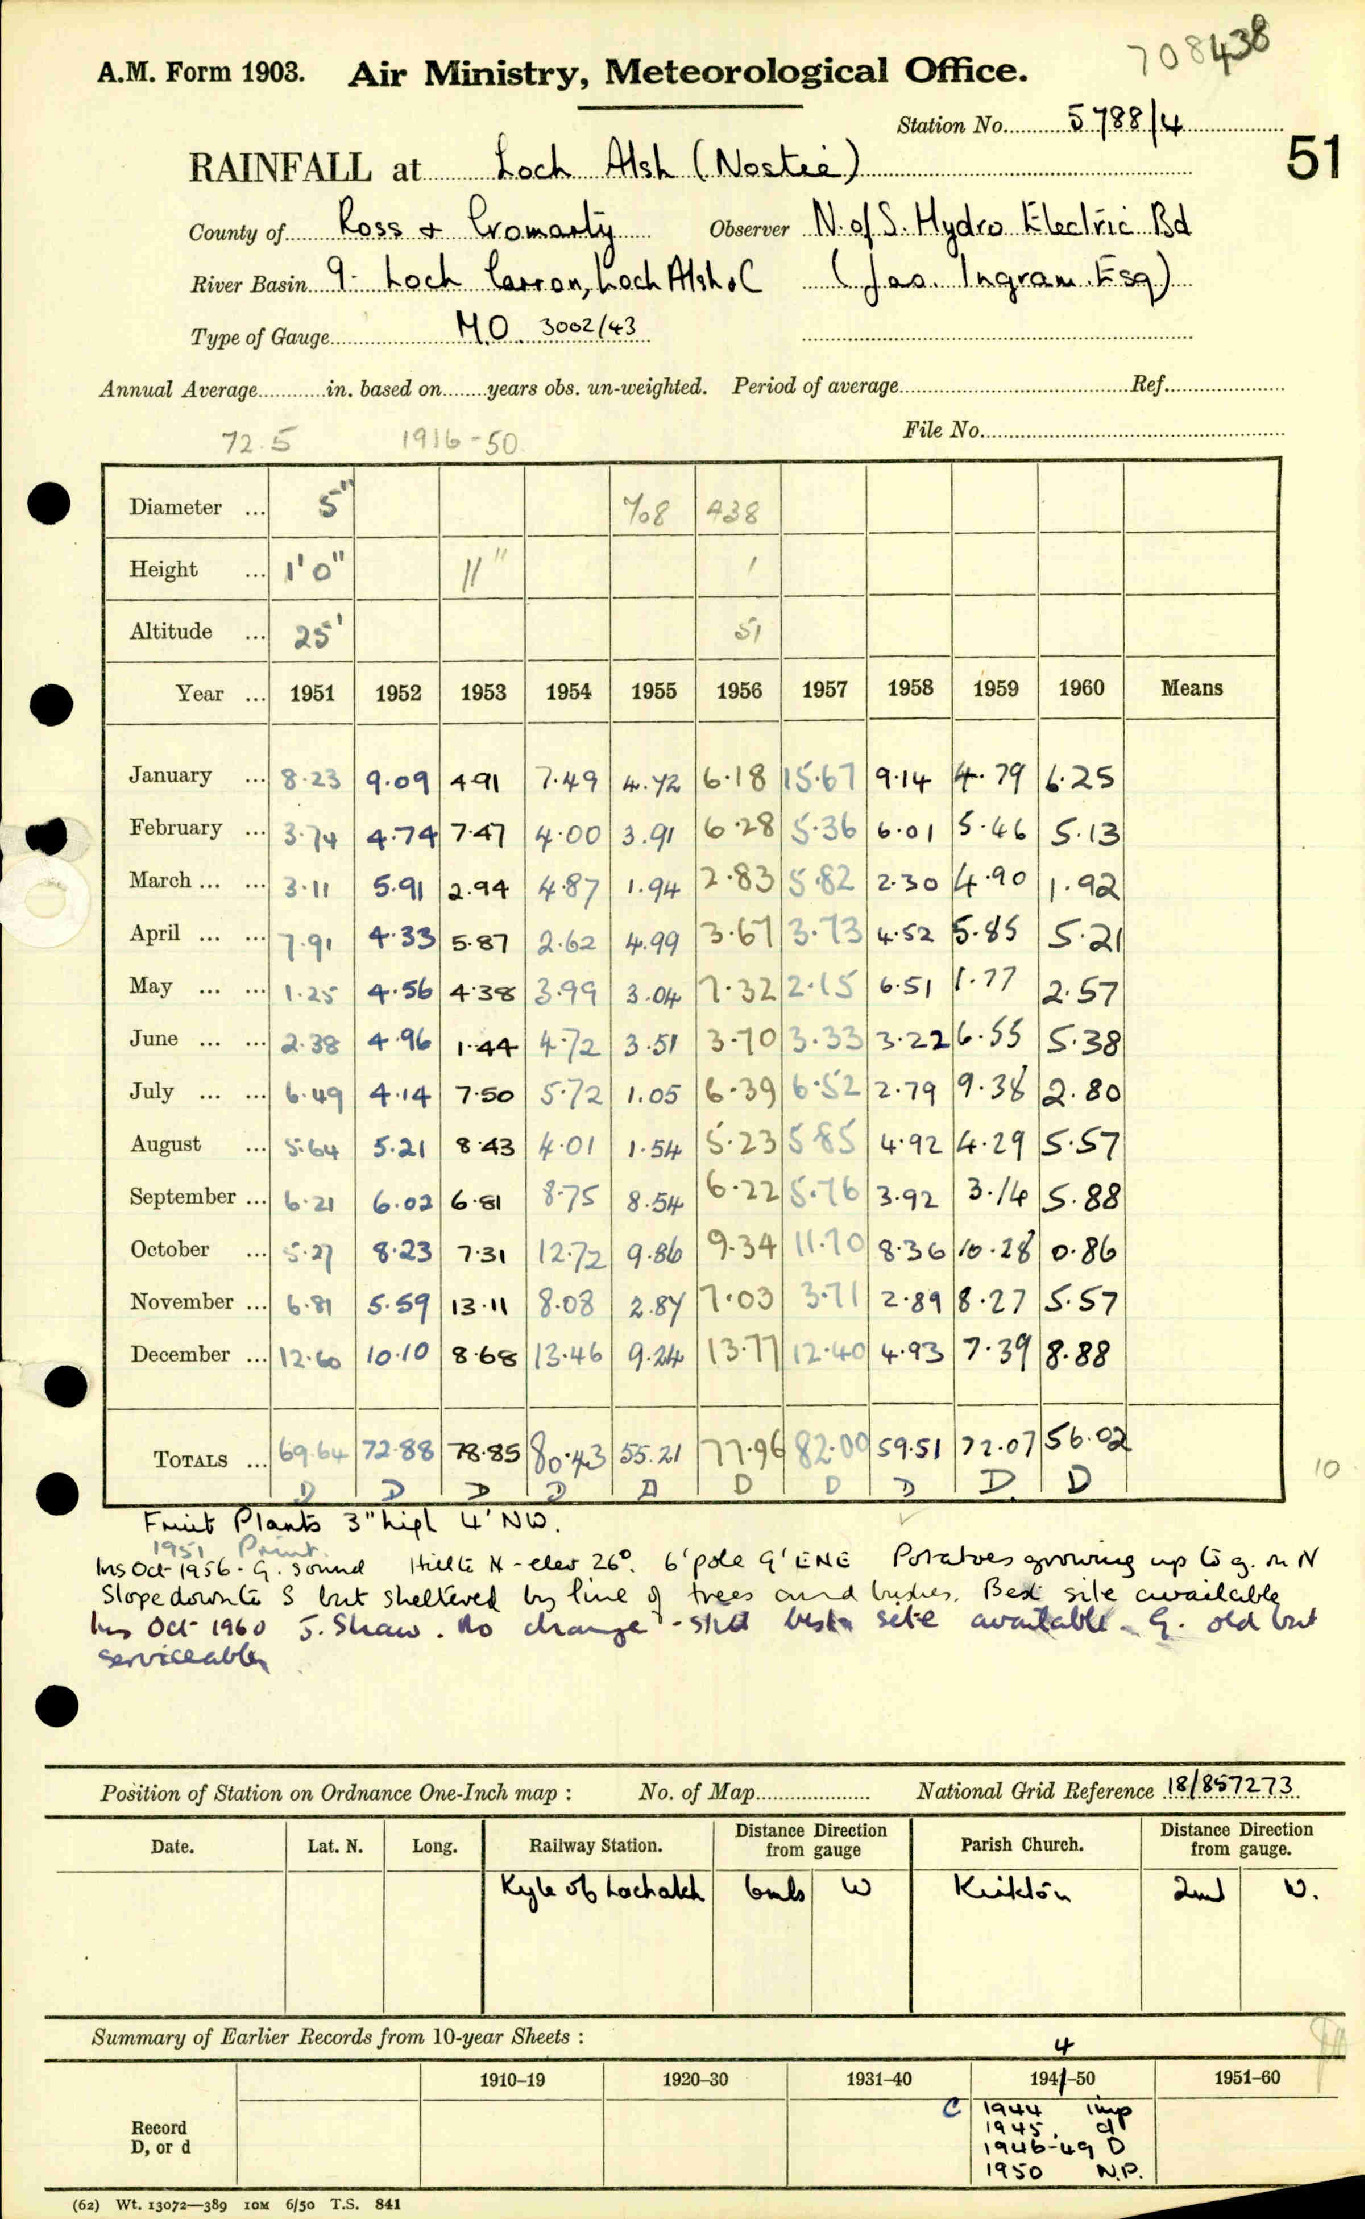 708438
A.M. Form 1903. Air Ministry, Meteorological Office.
Station No. 5788/4
51
RAINFALL at Loch Alsh (Nostie)
County of Ross & Cromarty Observer N. of S. Hydro Electric Bd
River Basin 9. Loch Carron, Loch Alsh &C (Jas. Ingram. Esq)
Type of Gauge M.O. 3002/43
Annual Average in. based on years obs. un-weighted. Period of average Ref.
72.5 1916-50 File No.
Diameter ... 5" 708 438
Height ... 1'0" 11" 1
Altitude ... 25' 51
Year ... 1951 1952 1953 1954 1955 1956 1957 1958 1959 1960 Means
January ... 8.23 9.09 4.91 7.49 4.72 6.18 15.67 9.14 4.79 6.25
February ... 3.74 4.74 7.47 4.00 3.91 6.28 5.36 6.01 5.46 5.13
March ... ... 3.11 5.91 2.94 4.87 1.94 2.83 5.82 2.30 4.90 1.92
April ... ... 7.91 4.33 5.87 2.62 4.99 3.67 3.73 4.52 5.85 5.21
May ... ... 1.25 4.56 4.38 3.99 3.04 7.32 2.15 6.51 1.77 2.57
June ... ... 2.38 4.96 1.44 4.72 3.51 3.70 3.33 3.22 6.55 5.38
July ... ... 6.49 4.14 7.50 5.72 1.05 6.39 6.52 2.79 9.38 2.80
August ... 5.64 5.21 8.43 4.01 1.54 5.23 5.85 4.92 4.29 5.57
September ... 6.21 6.02 6.81 8.75 8.54 6.22 5.76 3.92 3.14 5.88
October ... 5.27 8.23 7.31 12.72 9.86 9.34 11.70 8.36 10.28 0.86
November ... 6.81 5.59 13.11 8.08 2.87 7.03 3.71 2.89 8.27 5.57
December ... 12.60 10.10 8.68 13.46 9.24 13.77 12.40 4.93 7.39 8.88
TOTALS ... 69.64 72.88 78.85 80.43 55.21 77.96 82.00 59.51 72.07 56.02
10
D D D D D D D D D. D
Fruit Plants 3" high 4' NW.
1951 Print.
Ins Oct 1956 - G. sound Hill to N - elev 26°. 6' pole 9' ENE Potatoes growing up to g. on N
Slope down to S but sheltered by line of trees and bushes. Best site available
Ins Oct 1960 J. Shaw. No change - still best site available. G. old but
serviceable
Position of Station on Ordnance One-Inch map : No. of Map National Grid Reference 18/857273
Date. Lat. N. Long. Railway Station. Distance Direction from gauge Parish Church. Distance Direction from gauge.
Kyle of Lochalsh 6mls W Kirkton 2ml W.
Summary of Earlier Records from 10-year Sheets :
4
1910–19 1920–30 1931–40 1941–50 1951–60
Record
D, or d
C 1944 imp
1945. d
1946-49 D
1950 N.P.
(62) Wt. 13072—389 10M 6/50 T.S. 841